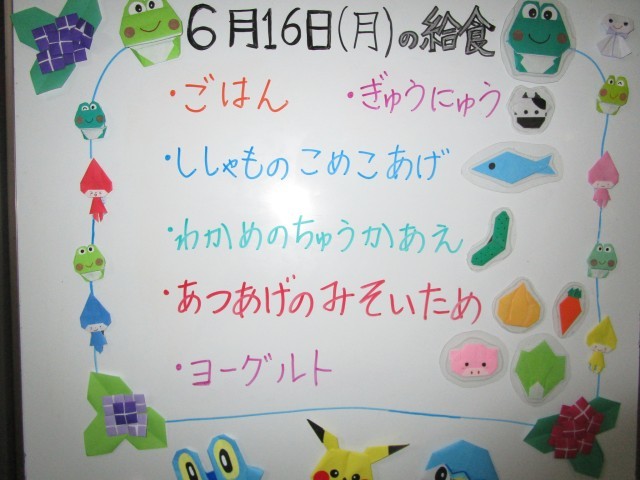 6月16日(月)の給食
・ごはん ・ぎゅうにゅう
・ししゃものこめこあげ
・わかめのちゅうかあえ
・あつあげのみそいため
・ヨーグルト